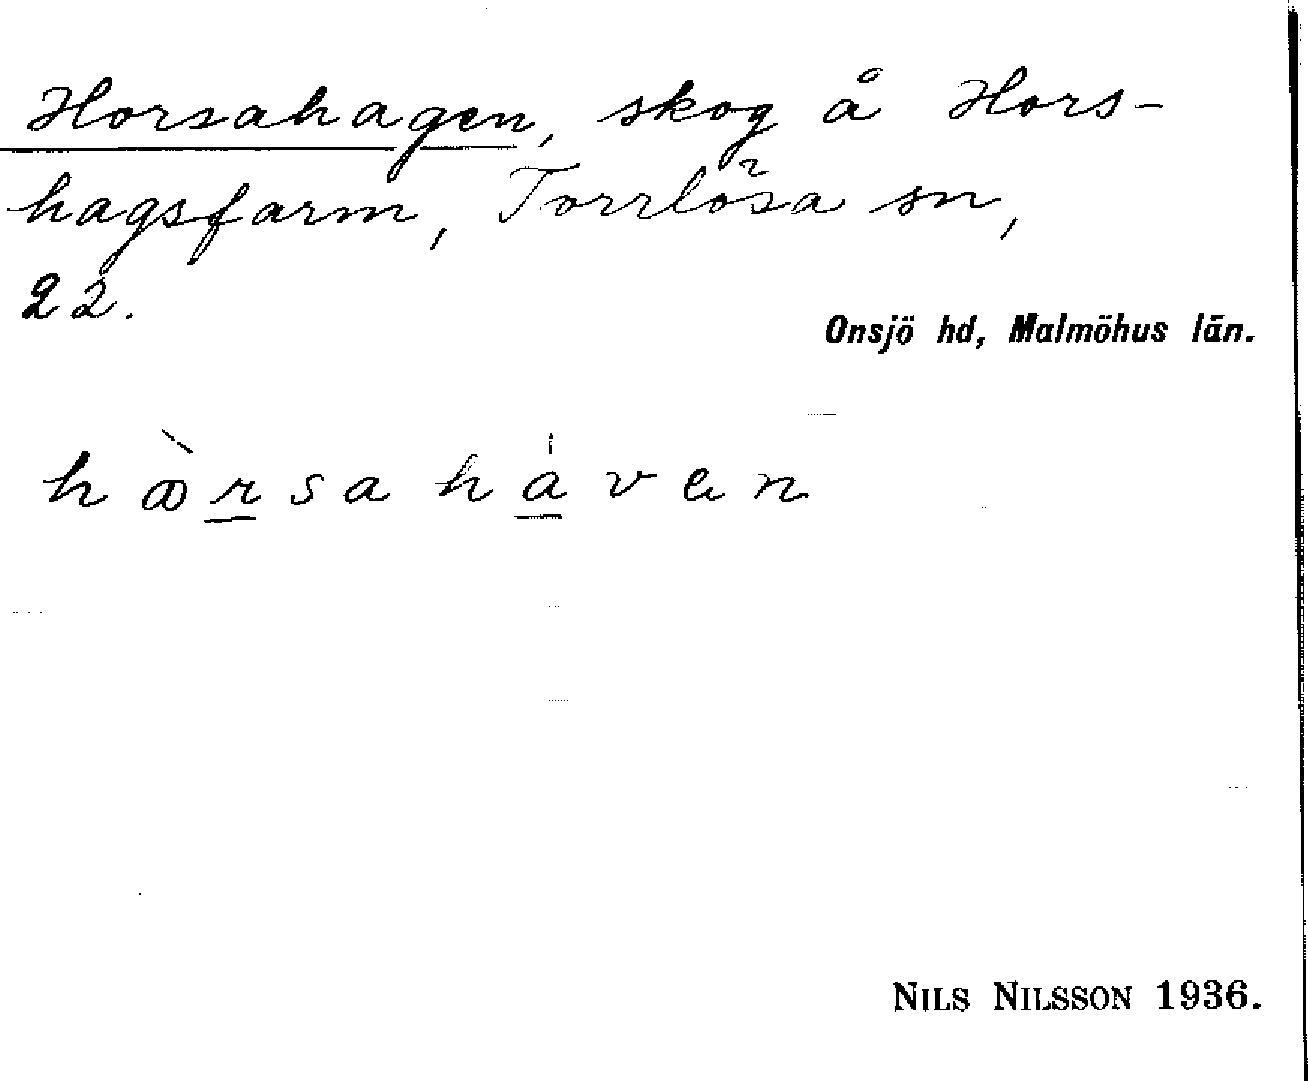 Horsahagen, skog å Hors-
hagsfarm, Torrlösa sn,
22.
Onsjö hd, Malmöhus län.
hꝏ̀rsahávan
NILS NILSSON 1936.